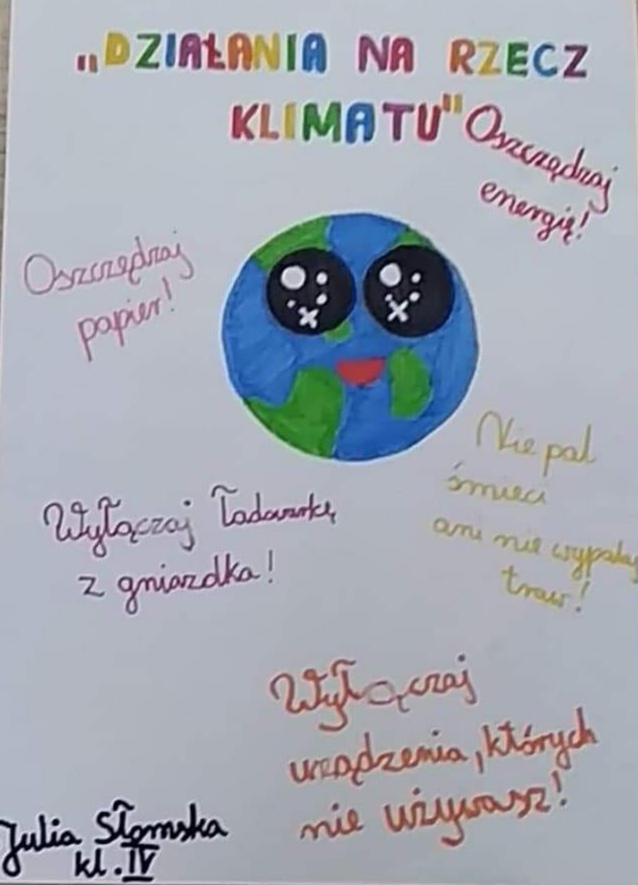 „DZIAŁANIA NA RZECZ
KLIMATU"
Oszczędzaj
energię!
Oszczędzaj
papier!
Nie pal
śmieci
ani nie wypalaj
traw!
Wyłączaj ładowarkę
z gniazdka!
Wyłączaj
urządzenia, których
nie używasz!
Julia Słomska
kl. IV